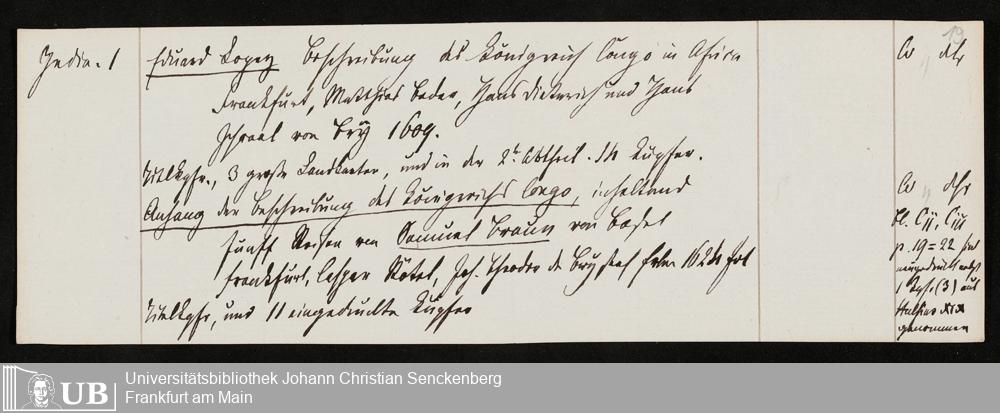 19
India. 1
Eduard Lopez Beschreibung des Königreich Congo in Africa
Frankfurt, Matthias Becker, Hans Dieterich und Hans
Israel von Bry 1609.
Titelkpfr., 3 große Landkarten, und in der 2t. Abtheil. 14 Kupfer.
Anhang der Beschreibung des Königreichs Congo, inhaltend
fünff Reisen von Samuel Braun von Basel
Frankfurt, Caspar Rötel, Joh. Theodor de Bry 1624
Titelkpfr, und 11 eingedruckte Kupfer
Bl. Cij, Ciij
p. 19=22 sind
(3) aus
Hulsius XIX
genommen
UB
Universitätsbibliothek Johann Christian Senckenberg
Frankfurt am Main